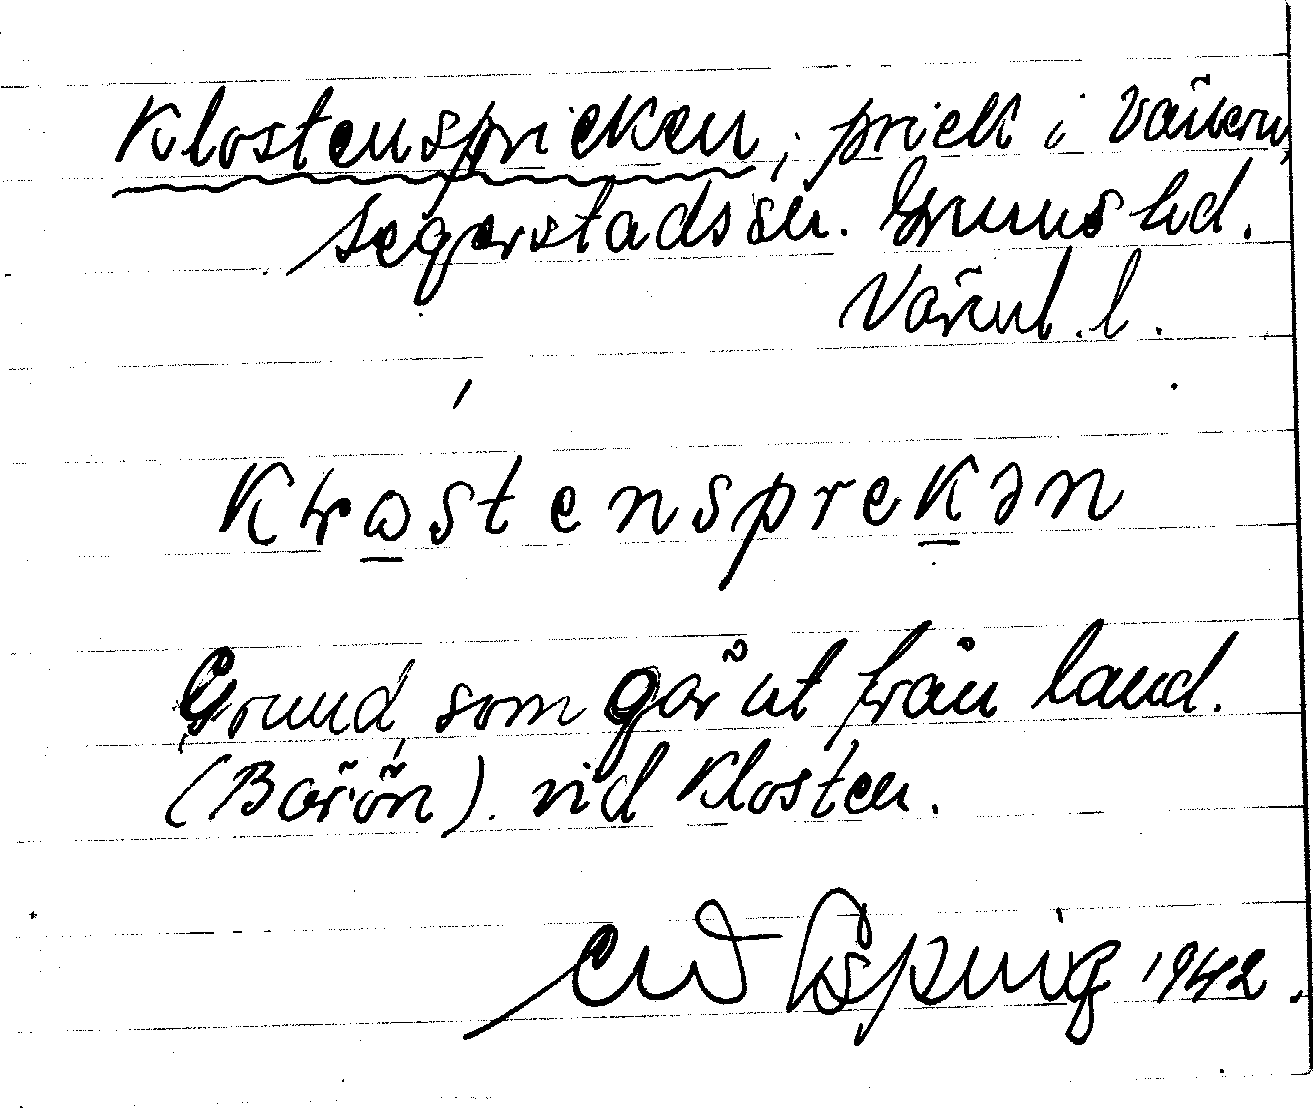 Klostenspricken, prick i Vänern,
Segerstads sn. Grums hd.
Värml. l.
Klostensprekən
Grund, som går ut från land.
(Börön) vid Klosten.
1942.